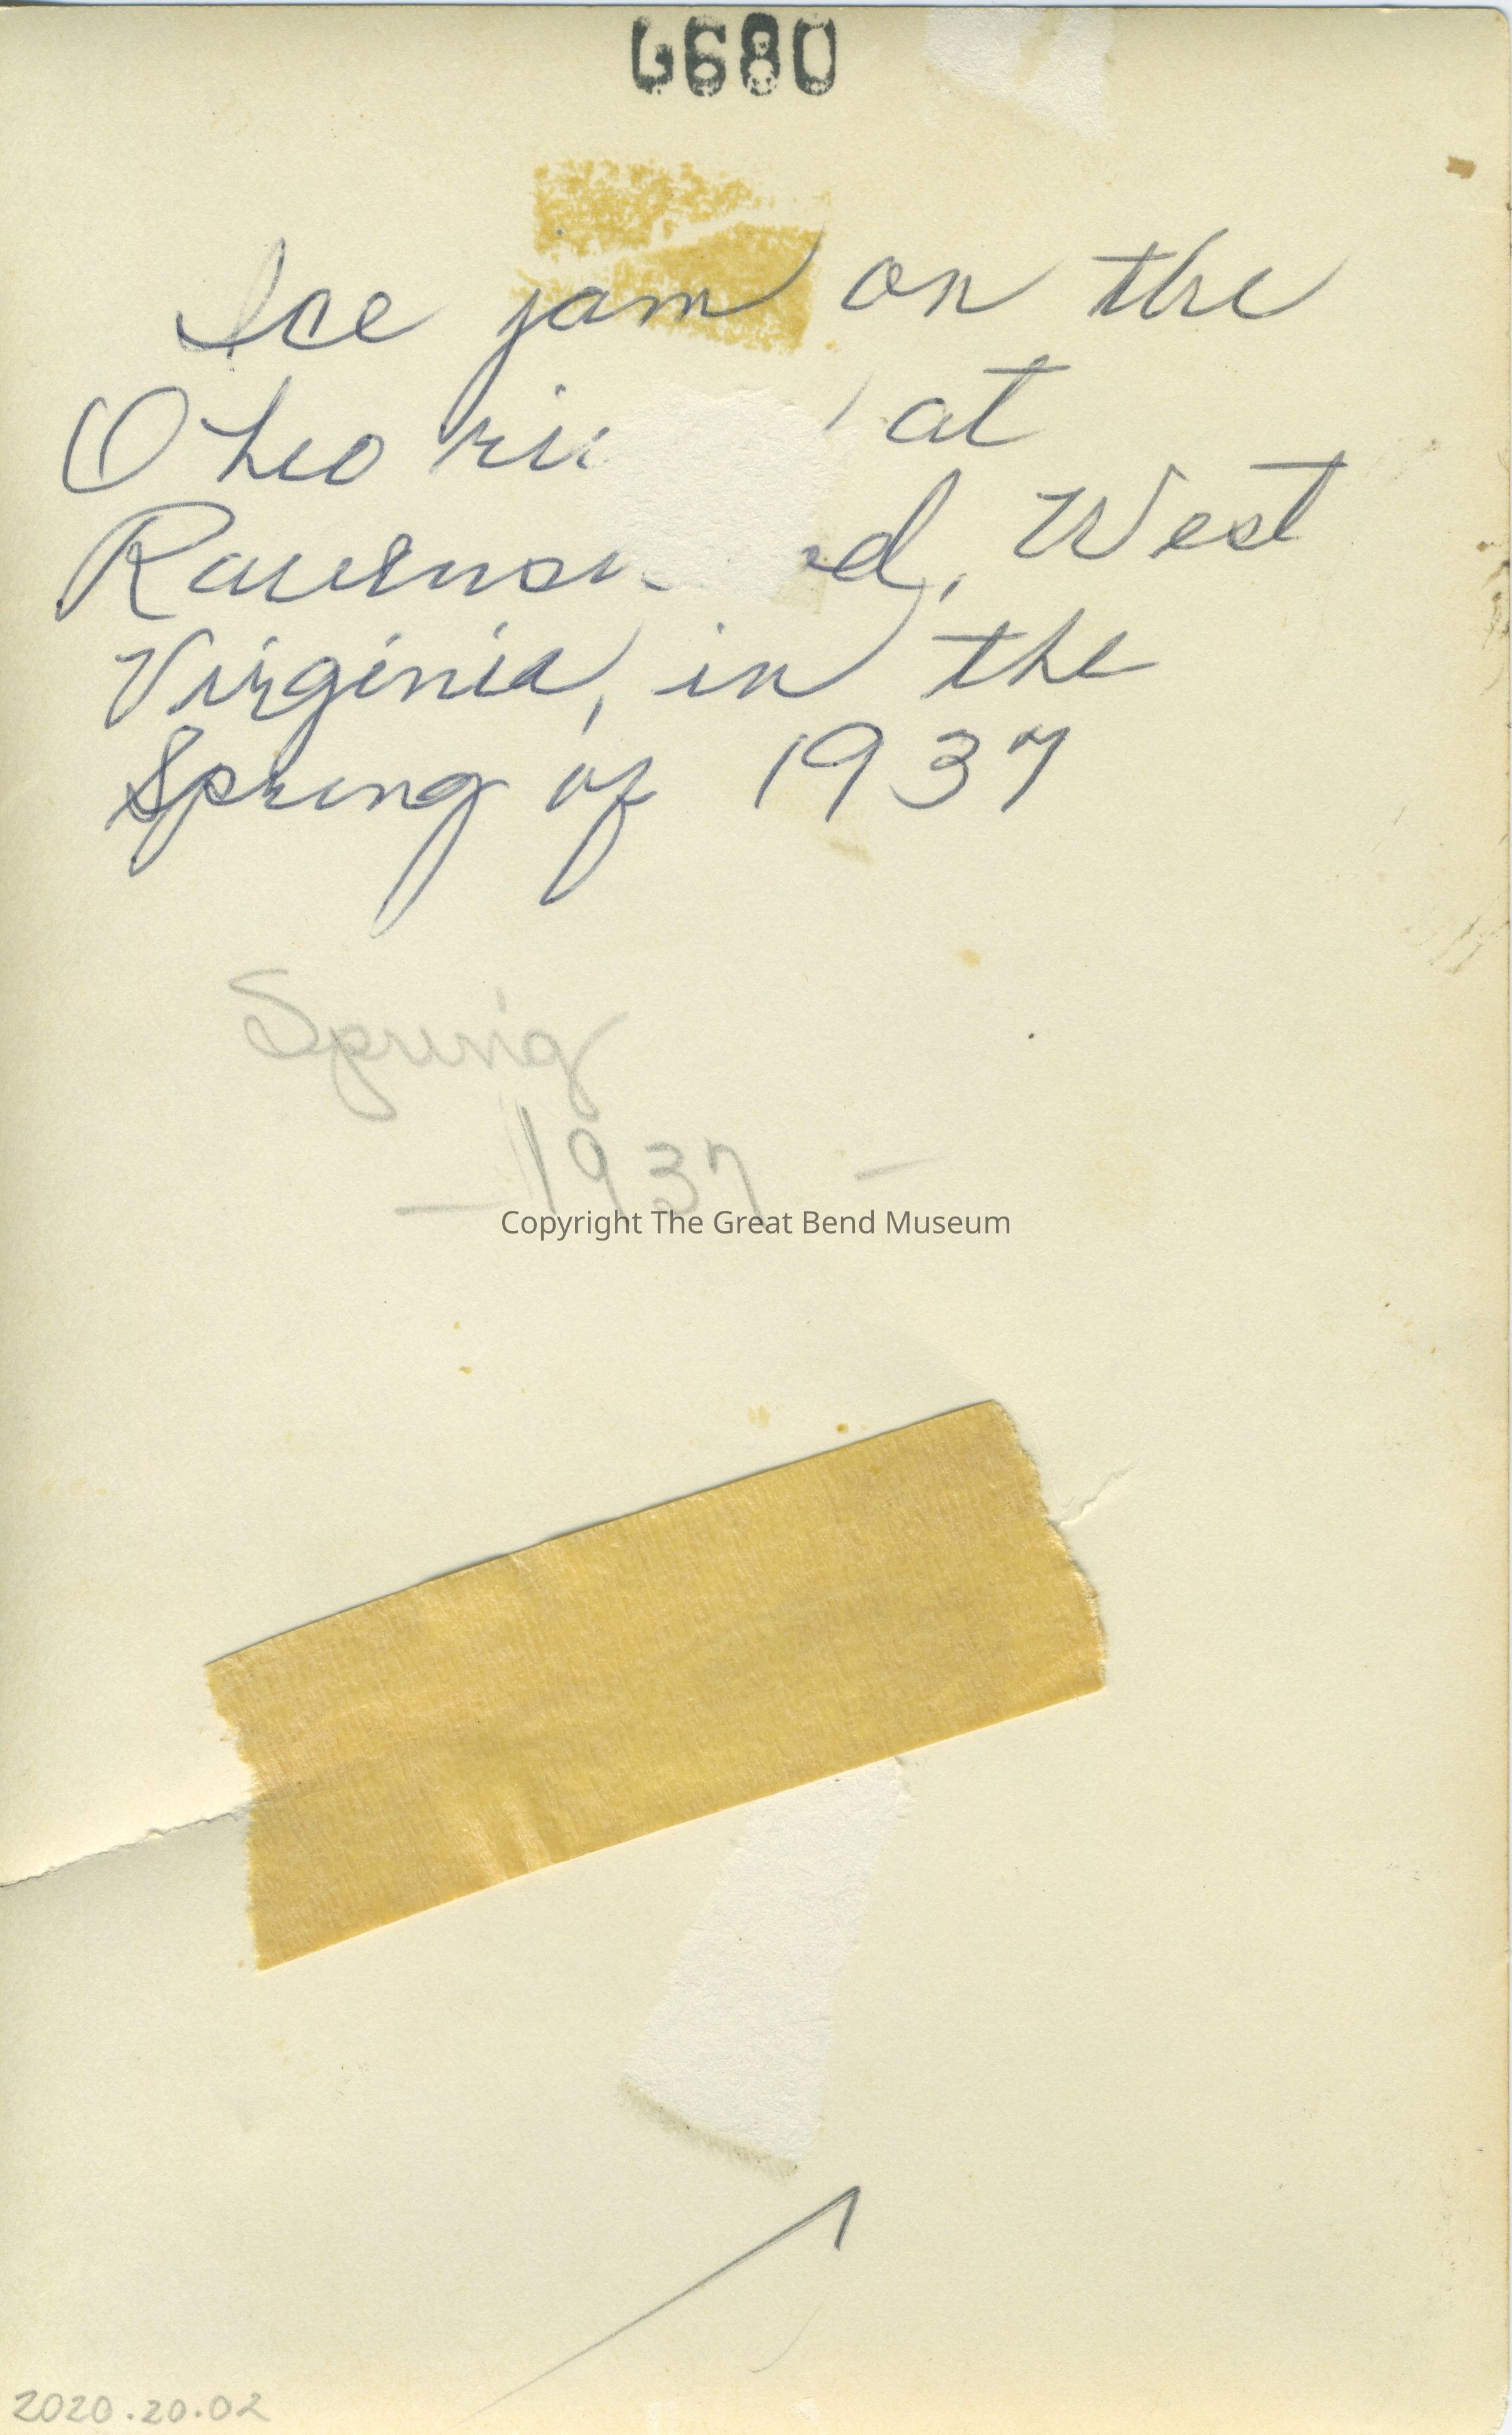 Ice jam on the
Ohio riv at
Ravensw d, West
Virginia, in the
Spring of 1937
Spring
— 1937 —
Copyright The Great Bend Museum
2020.20.02